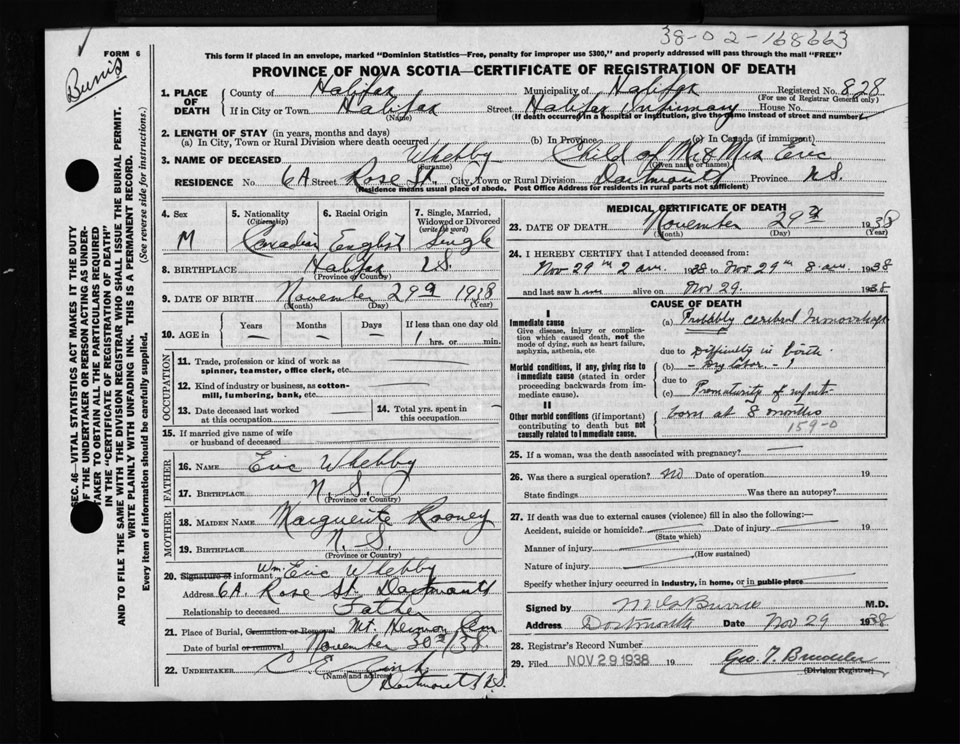 38-02-168663
FORM 6
Burris
This form if placed in an envelope, marked "Dominion Statistics—Free, penalty for improper use $300," and properly addressed will pass through the mail "FREE"
PROVINCE OF NOVA SCOTIA—CERTIFICATE OF REGISTRATION OF DEATH
SEC. 46—VITAL STATISTICS ACT MAKES IT THE DUTY
OF THE UNDERTAKER OR PERSON ACTING AS UNDER-
TAKER TO OBTAIN ALL THE PARTICULARS REQUIRED
IN THE "CERTIFICATE OF REGISTRATION OF DEATH"
AND TO FILE THE SAME WITH THE DIVISION REGISTRAR WHO SHALL ISSUE THE BURIAL PERMIT.
WRITE PLAINLY WITH UNFADING INK. THIS IS A PERMANENT RECORD.
Every item of information should be carefully supplied. (See reverse side for instructions.)
1. PLACE OF DEATH County of Halifax Municipality of Halifax Registered No. 828
(For use of Registrar General only)
If in City or Town Halifax Street Halifax Infirmary House No.
(Name) (If death occurred in a hospital or institution, give the name instead of street and number)
2. LENGTH OF STAY (in years, months and days)
(a) In City, Town or Rural Division where death occurred (b) In Province (c) In Canada (if immigrant)
3. NAME OF DECEASED Whebby Child of Mr & Mrs Eric
(Surname) (Given name or names)
RESIDENCE No 6A Street Rose St. City, Town or Rural Division Dartmouth Province N.S.
(Residence means usual place of abode. Post Office Address for residents in rural parts not sufficient)
4. Sex M
5. Nationality (Citizenship) Canadian
6. Racial Origin English
7. Single, Married, Widowed or Divorced (write the word) Single
8. BIRTHPLACE Halifax N.S.
(Province or Country)
9. DATE OF BIRTH November 29th 1938
(Month) (Day) (Year)
10. AGE in Years Months Days If less than one day old
hrs. or min.
OCCUPATION
11. Trade, profession or kind of work as
spinner, teamster, office clerk, etc.
12. Kind of industry or business, as cotton-
mill, lumbering, bank, etc.
13. Date deceased last worked
at this occupation
14. Total yrs. spent in
this occupation.
15. If married give name of wife
or husband of deceased
FATHER
16. NAME Eric Whebby
17. BIRTHPLACE N.S.
(Province or Country)
MOTHER
18. MAIDEN NAME Marguerite Rooney
19. BIRTHPLACE N.S.
(Province or Country)
20. Signature of informant Wm. Eric Whebby
Address 6A. Rose St. Dartmouth
Relationship to deceased Father
21. Place of Burial, Cremation or Removal Mt. Hermon Cem
Date of burial or removal November 30th/38
22. UNDERTAKER
(Name and address)
Dartmouth N.S.
MEDICAL CERTIFICATE OF DEATH
23. DATE OF DEATH November 29th 1938
(Month) (Day) (Year)
24. I HEREBY CERTIFY that I attended deceased from:
Nov 29th 2 am 1938 to Nov 29th 8 am 1938
and last saw him alive on Nov 29. 1938
CAUSE OF DEATH
I
Immediate cause
Give disease, injury or complica-
tion which caused death, not the
mode of dying, such as heart failure,
asphyxia, asthenia, etc
(a) Probably cerebral hemorrhage
due to Difficulty in birth
Morbid conditions, if any, giving rise to
immediate cause (stated in order
proceeding backwards from im-
mediate cause).
(b) - Dry labor -
due to
(c) Prematurity of infant
II
Other morbid conditions (if important)
contributing to death but not
causally related to immediate cause.
born at 8 months
159-0
25. If a woman, was the death associated with pregnancy?
26. Was there a surgical operation? No Date of operation 19
State findings Was there an autopsy?
27. If death was due to external causes (violence) fill in also the following:—
Accident, suicide or homicide? Date of injury 19
(State which)
Manner of injury
(How sustained)
Nature of injury
Specify whether injury occurred in industry, in home, or in public place
Signed by Burris M.D.
Address Dartmouth Date Nov 29 1938
28. Registrar's Record Number
29. Filed NOV 29 1938 19 Geo. T.
(Division Registrar)